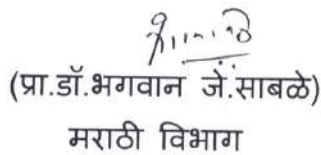 (प्रा.डॉ.भगवान जें.साबळे)
मराठी विभाग